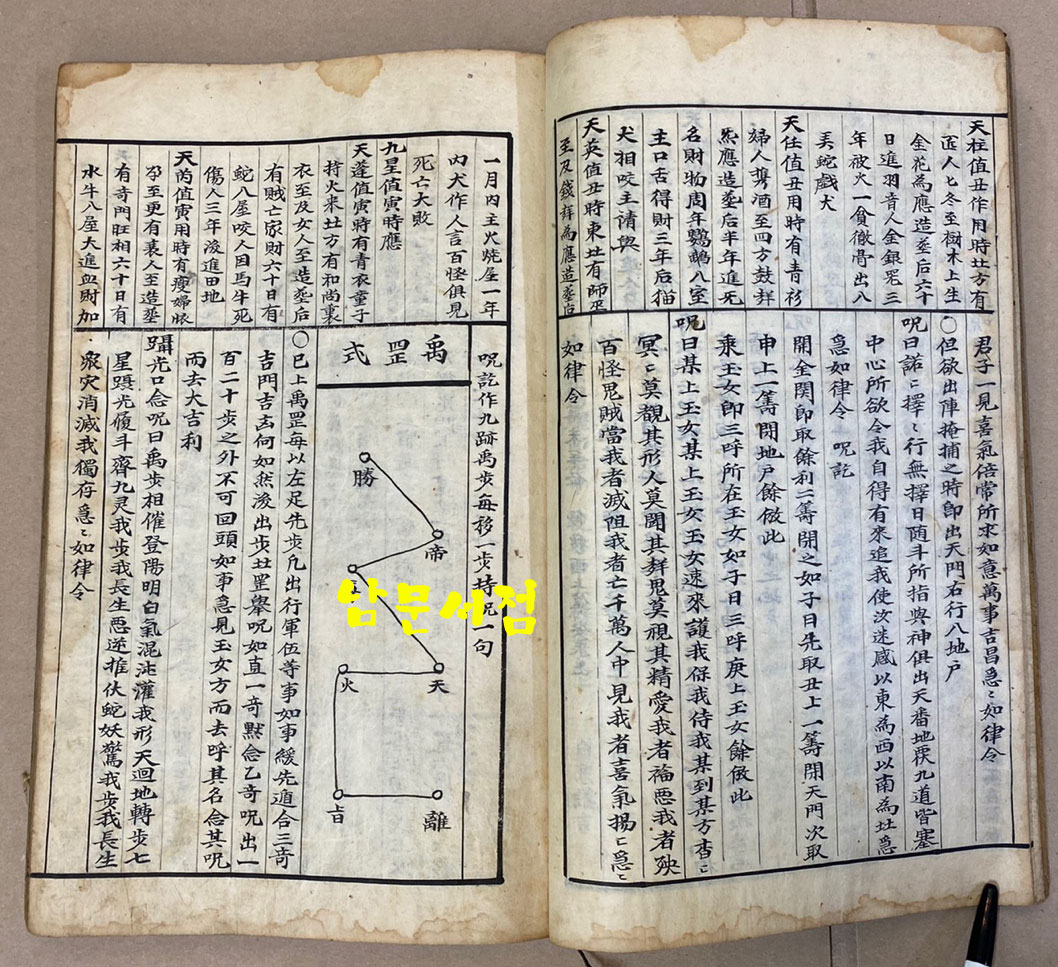 天柱值丑作用時北方有
匠人匕冬至樹木上生
金花為應造塟后六十
日進羽音人金銀㽝三
年被火一貧徹骨出八
天任值丑用時有青衫
婦人㩦酒至四方鼓
㷼應造塟后半年進
名財物周年鸚鵡入室
主口舌得財三年后猫
犬相咬主請
天英值丑時東北有師巫
至及鈛
為應造塟后
君子一見喜氣倍常所求如意萬事吉昌急〻如律令
〇但欲出陣掩捕之時卽出天門右行入地户
呪曰諾〻擇〻行無擇日随斗所指與神俱出天番地
九道皆塞
中心所欲令我自得有來追我使汝迷惑以東為西以南為北急
急如律令 呪訖
開金関卽取餘利二籌開之如子日先取丑上一籌開天門次取
申上一籌開地户餘倣此
乘玉女卽三呼所在玉女如子日三呼庚上玉女餘倣此
呪曰某上玉女某上玉女玉女速來護我保我侍我某到某方杳〻
冥〻莫覩其形人莫聞其
鬼莫視其精愛我者福惡我者殃
百怪鬼賊當我者滅阻我者亡千萬人中見我者喜氣揚〻急〻
如律令
一月內主火燒屋一年
內犬作人言百怪俱見
死亡大敗
九星值寅時應
天蓬值寅時有青衣童子
持火來北方有和尚裹
衣至及女人至造塟后
有賊亡家財六十日有
蛇入屋咬人因馬牛死
傷人三年後進田地
天芮值寅用時有瘦婦
至更有裹人至造塟
有奇門旺相六十日有
水牛入屋大進血財加
呪訖作九跡禹步每移一步持呪一句
禹罡式
勝
帝
天
火
離
〇已上禹罡每以左足先步凡出行軍伍等事如事緩先適合三奇
吉門吉去向如然後出步北罡舉呪如直一奇黙念乙奇呪出一
百二十步之外不可回頭如事急見玉女方而去呼其名念其呪
而去大吉利
躡光口念呪曰禹步相催登陽明白氣混沌灌我形天迴地轉步七
星躡光履斗齊九灵我步我長生惡逆摧伏蛇妖驚我步我長生
衆灾消滅我獨存急〻如律令
암문서점